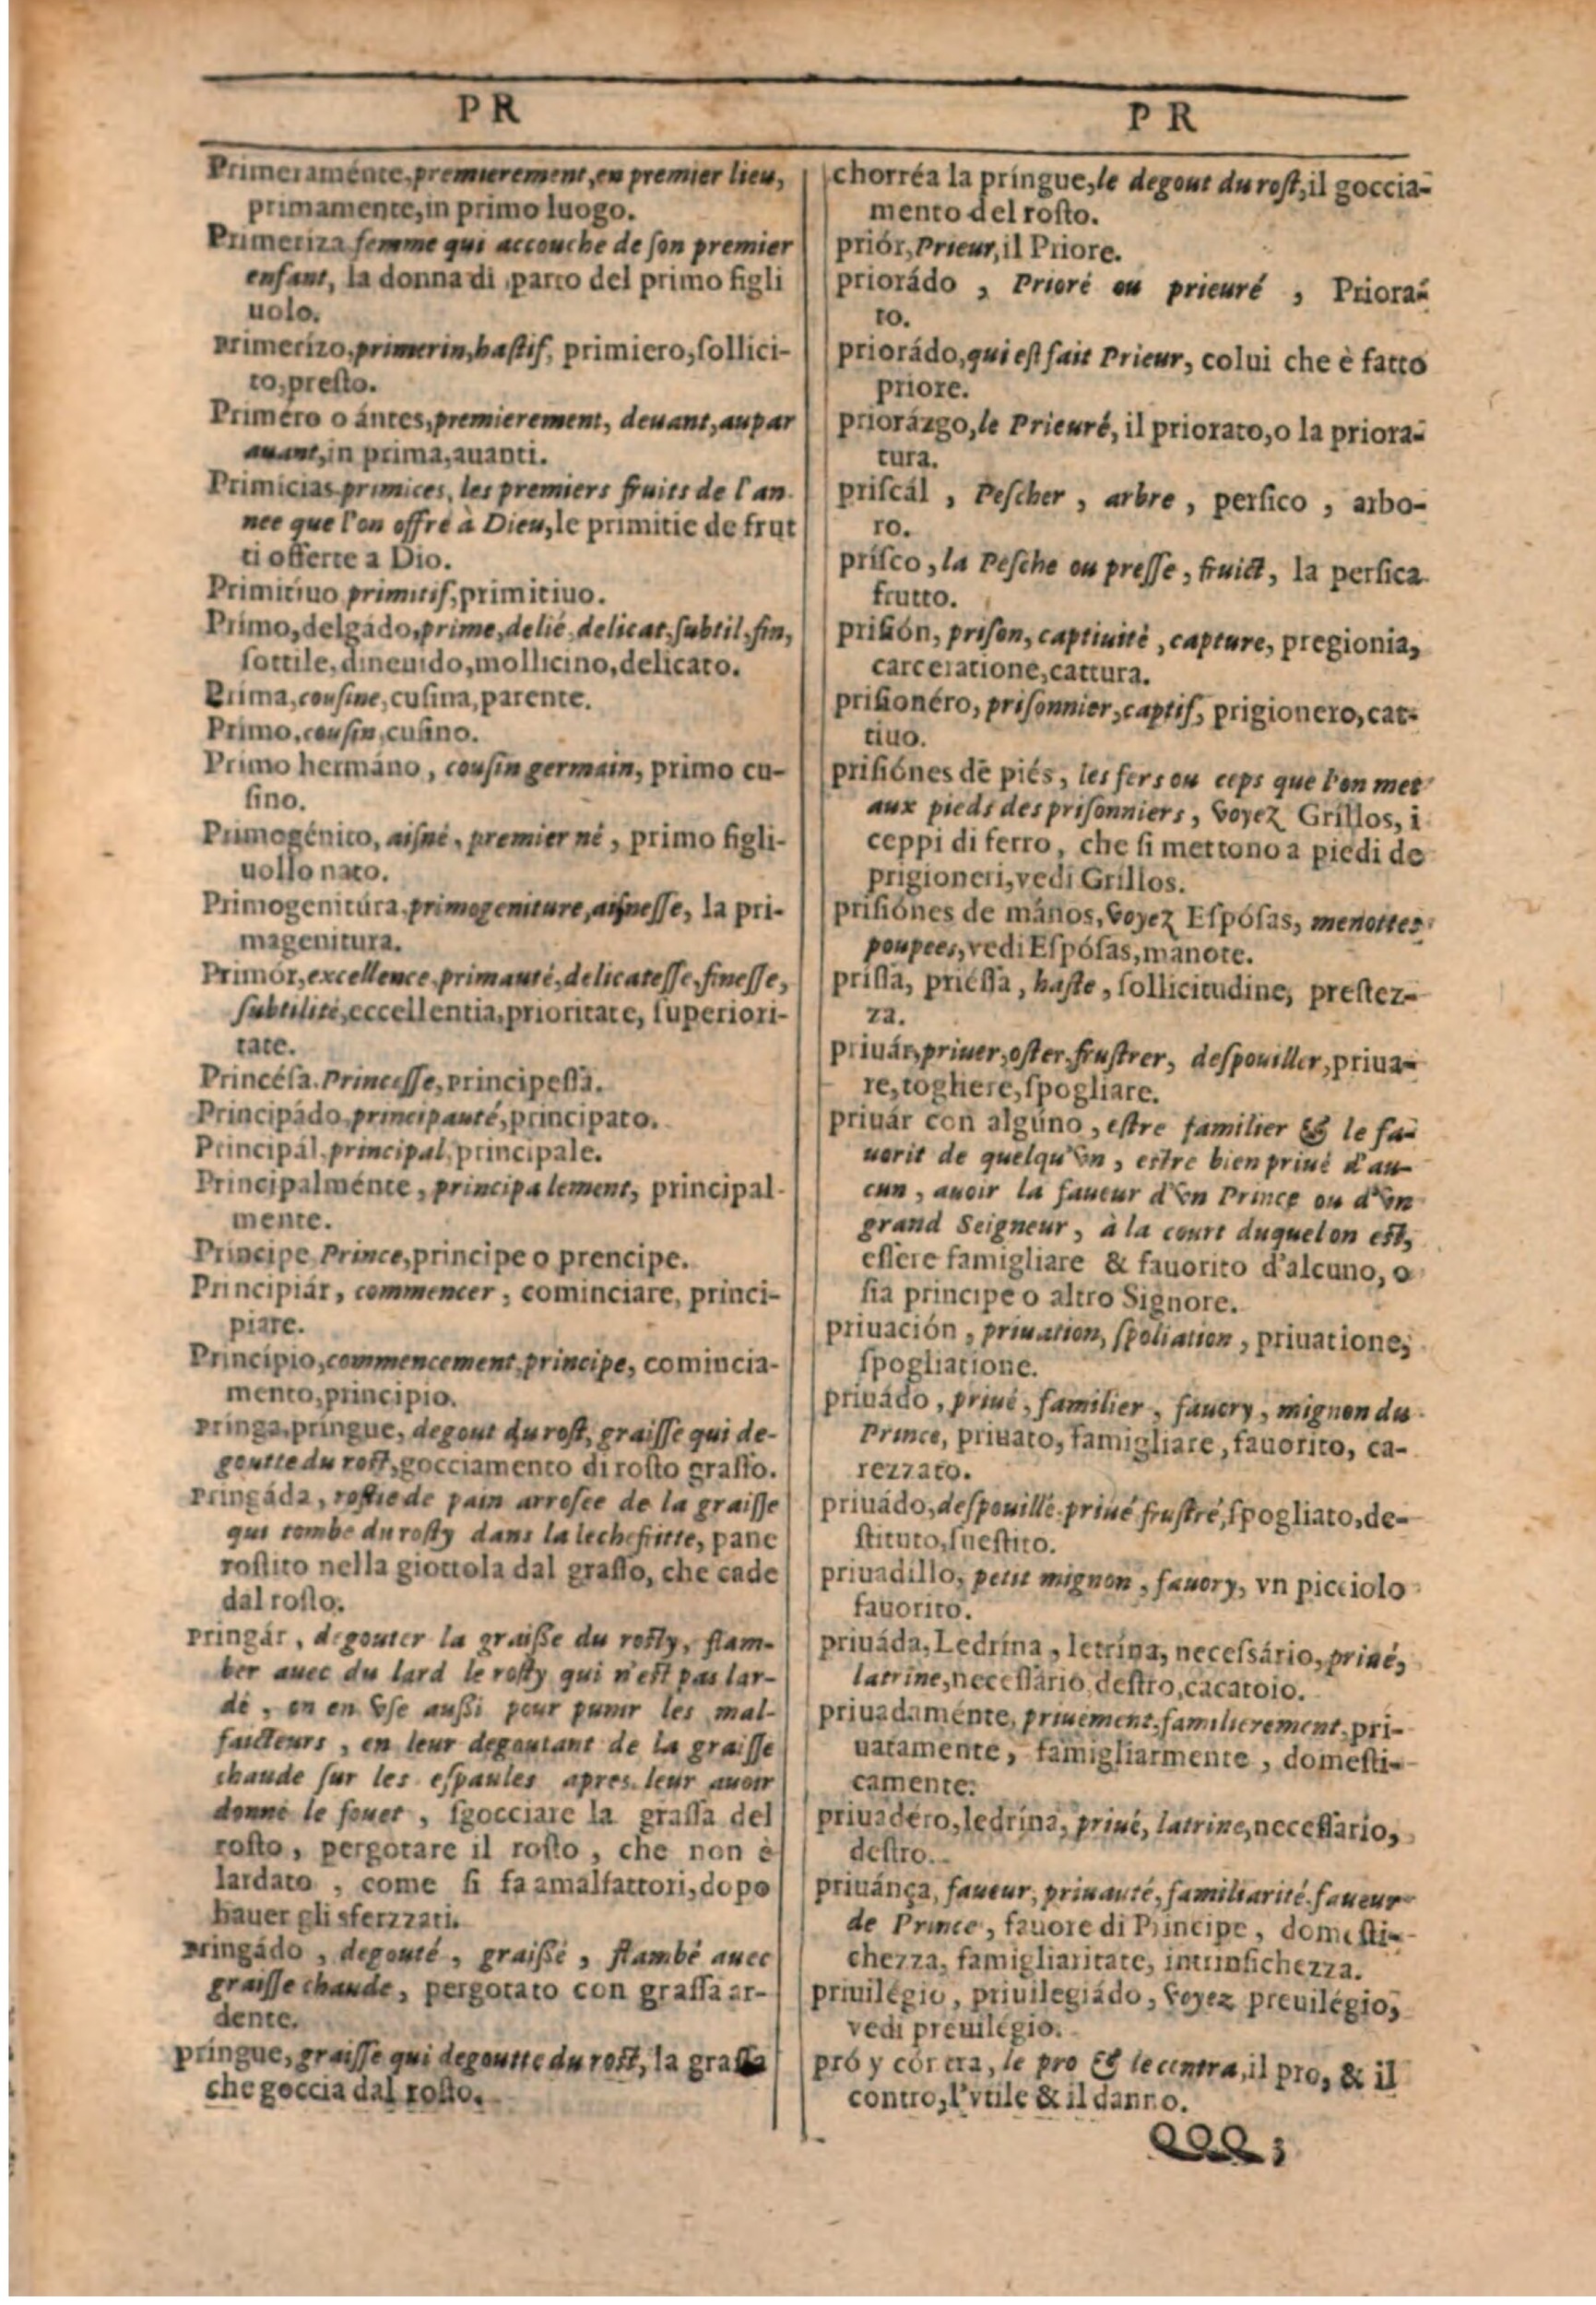 PR
Primeraménte, premierement, en premier lieu,
primamente, in primo luogo.
Primeriza femme qui accouche de ſon premier
enfant, la donna di parto del primo figli
uolo.
primerizo, primerin, haſtif, primiero, ſollici-
to, preſto.
Priméro o ántes, premierement, deuant, aupar
auant, in prima, auanti.
Primicias primices, les premiers fruits de l'an-
nee que l'on offre à Dieu, le primitie de frut
ti offerte a Dio.
Primitíuo primitif, primitiuo.
Prímo, delgádo, prime, delié, delicat, ſubtil, fin,
ſottile, dineuido, mollicino, delicato.
Prima, couſine, cuſina, parente.
Primo, couſin, cuſino.
Primo hermáno, couſin germain, primo cu-
ſino.
Primogénito, aiſné, premier né, primo figli-
uollo nato.
Primogenitúra, primogeniture, aiſneſſe, la pri-
magenitura.
Primór, excellence, primauté, delicateſſe, fineſſe,
ſubtilité, eccellentia, prioritate, ſuperiori-
tate.
Princéſa. Princeſſe, principeſſa.
Principádo, principauté, principato.
Principál, principal, principale.
Principalménte, principalement, principal-
mente.
Principe Prince, principe o prencipe.
Principiár, commencer, cominciare, princi-
piare.
Princípio, commencement, principe, comincia-
mento, principio.
Pringa, pringue, degout du roſt, graiſſe qui de-
goutte du roſt, gocciamento di roſto graſſo.
Pringáda, roſtie de pain arroſee de la graiſſe
qui tombe du roſty dans la lechefritte, pane
roſtito nella giottola dal graſſo, che cade
dal roſto.
pringár, degouter la graiſſe du roſty, flam-
ber auec du lard le roſty qui n'eſt pas lar-
dé, on en vſe auſſi pour punir les mal-
faicteurs, en leur degoutant de la graiſſe
chaude ſur les eſpaules apres leur auoir
donné le fouet, ſgocciare la graſſa del
roſto, pergotare il roſto, che non è
lardato, come ſi fa amalfattori, dopo
hauer gli sferzzati.
pringádo, degouté, graiſſé, flambé auec
graiſſe chaude, pergotato con graſſa ar-
dente.
príngue, graiſſe qui degoutte du roſt, la graſſa
che goccia dal roſto.
PR
chorréa la pringue, le degout du roſt, il goccia-
mento del roſto.
priór, Prieur, il Priore.
priorádo, Prioré ou prieuré, Priora-
to.
priorádo, qui eſt fait Prieur, colui che è fatto
priore.
priorázgo, le Prieuré, il priorato, o la priora-
tura.
priſcál, Peſcher, arbre, perſico, arbo-
ro.
príſco, la Peſche ou preſſe, fruict, la perſica
frutto.
priſión, priſon, captiuité, capture, pregionia,
carceratione, cattura.
priſionéro, priſonnier, captif, prigionero, cat-
tiuo.
priſiónes de piés, les fers ou ceps que l'on met
aux pieds des priſonniers, voyez Gríllos, i
ceppi di ferro, che ſi mettono a piedi de
prigioneri, vedi Grillos.
priſiónes de mános, voyez Eſpóſas, menottes
poupees, vedi Eſpóſas, manote.
príſſa, priéſſa, haſte, ſollicitudine, preſtez-
za.
priuár, priuer, oſter, fruſtrer, deſpouiller, priua-
re, togliere, ſpogliare.
priuár con algúno, eſtre familier & le fa-
uorit de quelqu'vn, eſtre bien priué d'au-
cun, auoir la faueur d'vn Prince ou d'vn
grand Seigneur, à la court duquel on eſt,
eſſere famigliare & fauorito d'alcuno, o
ſia principe o altro Signore.
priuación, priuation, ſpoliation, priuatione,
ſpogliatione.
priuádo, priué, familier, fauory, mignon du
Prince, priuato, famigliare, fauorito, ca-
rezzato.
priuádo, deſpouillé, priué fruſtré, ſpogliato, de-
ſtituto, ſueſtito.
priuadillo, petit mignon, fauory, vn picciolo
fauorito.
priuáda, Ledrína, letrína, neceſsário, priué,
latrine, neceſſario, deſtro, cacatoio.
priuadaménte, priuement, familierement, pri-
uatamente, famigliarmente, domeſti-
camente.
priuadéro, ledrína, priué, latrine, neceſſario,
deſtro.
priuánça, faueur, priuauté, familiarité, faueur
de Prince, fauore di Principe, domeſti-
chezza, famigliaritate, intrinſichezza.
priuilégio, priuilegiádo, voyez preuilégio,
vedi preuilégio.
pró y cóntra, le pro & le contra, il pro, & il
contro, l'vtile & il danno.
QQQ;